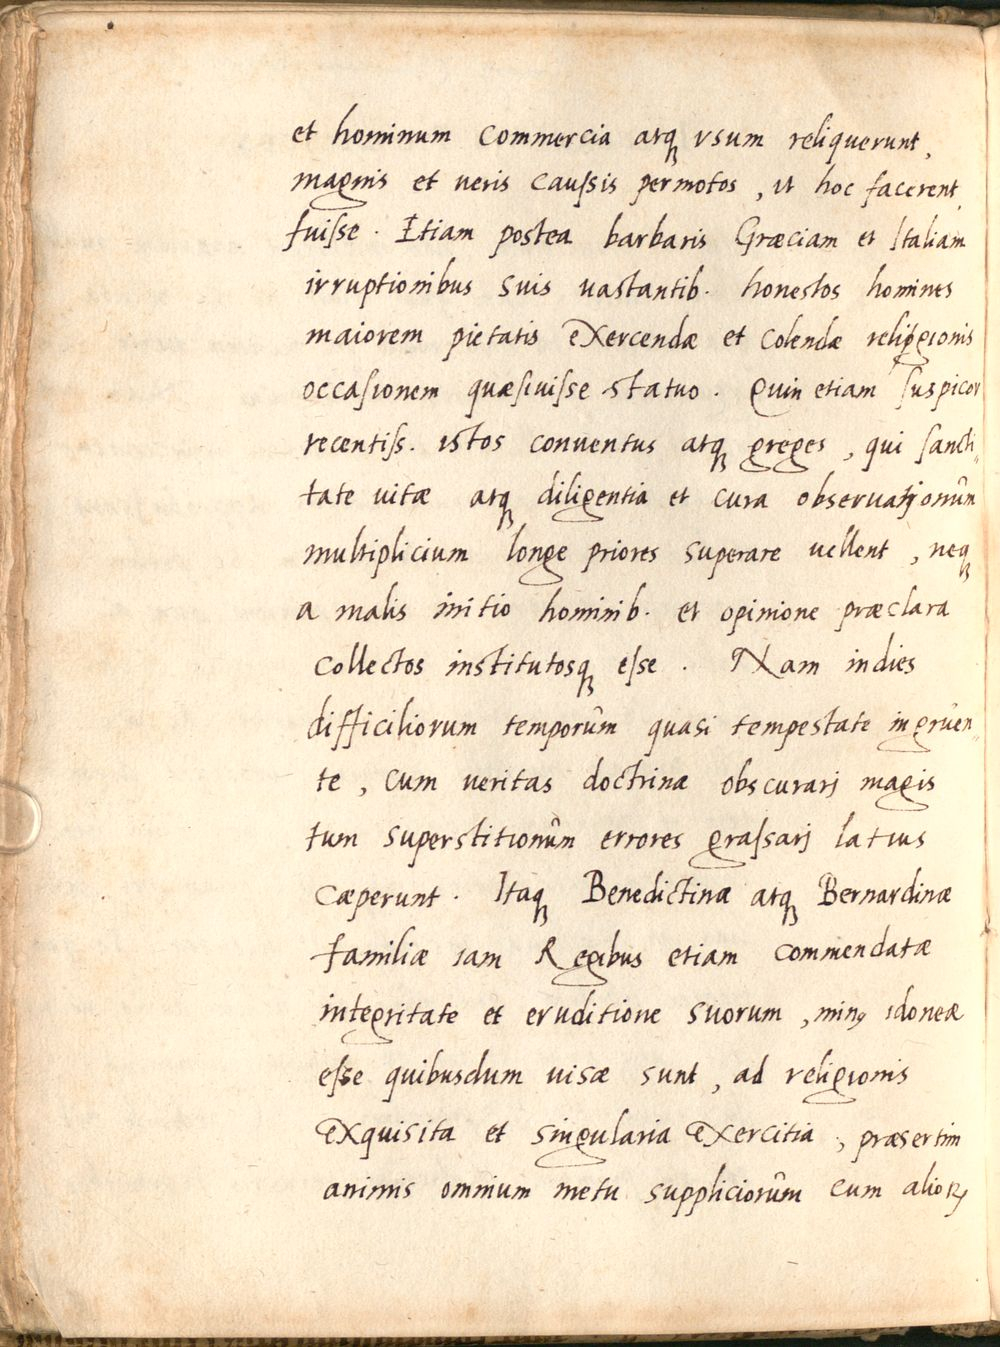 et hominum commercia atq́ vsum reliquerunt,
magnis et ueris caußis permotos, ut hoc facerent,
fuiſse. Etiam postea barbaris Græciam et Italiam
irruptionibus suis uastantib. honestos homines
maiorem pietatis exercendæ et colendæ religionis
occaſionem quæſiuiſse statuo. Quin etiam ſuspicor
recentiſs. istos conuentus atq greges, qui ſancti„
tate uitæ atq diligentia et cura obseruatjonûm
multiplicium longe priores superare uellent, neq
a malis initio hominib. et opinione præclara
collectos institutosq eſse. Nam indies
difficiliorum temporûm quasi tempestate ingrûen„
te, cum ueritas doctrinæ obscurarj magis
tum superstitionûm errores graſsarj latius
cæperunt. Itaq Benedictinæ atq Bernardinæ
familiæ iam Regibus etiam commendatæ
integritate et eruditione suorum, minꝰ idoneæ
eſse quibusdum uisæ sunt, ad religionis
exquisita et singularia exercitia, præsertim
animis omnium metu suppliciorûm cum alioꝝ